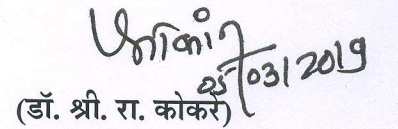 05/03/2019
(डॉ. श्री. रा. कोकरे)